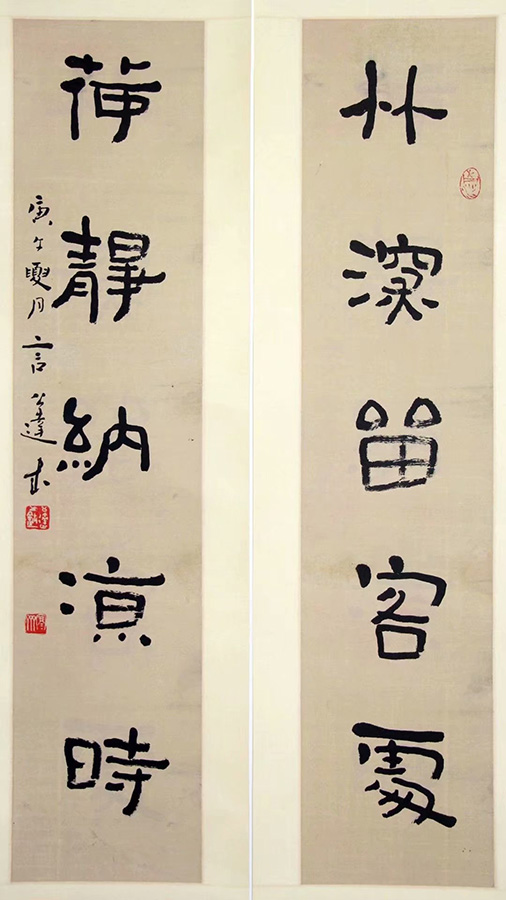 竹深留客處
荷靜納涼時
庚午夏月言公達